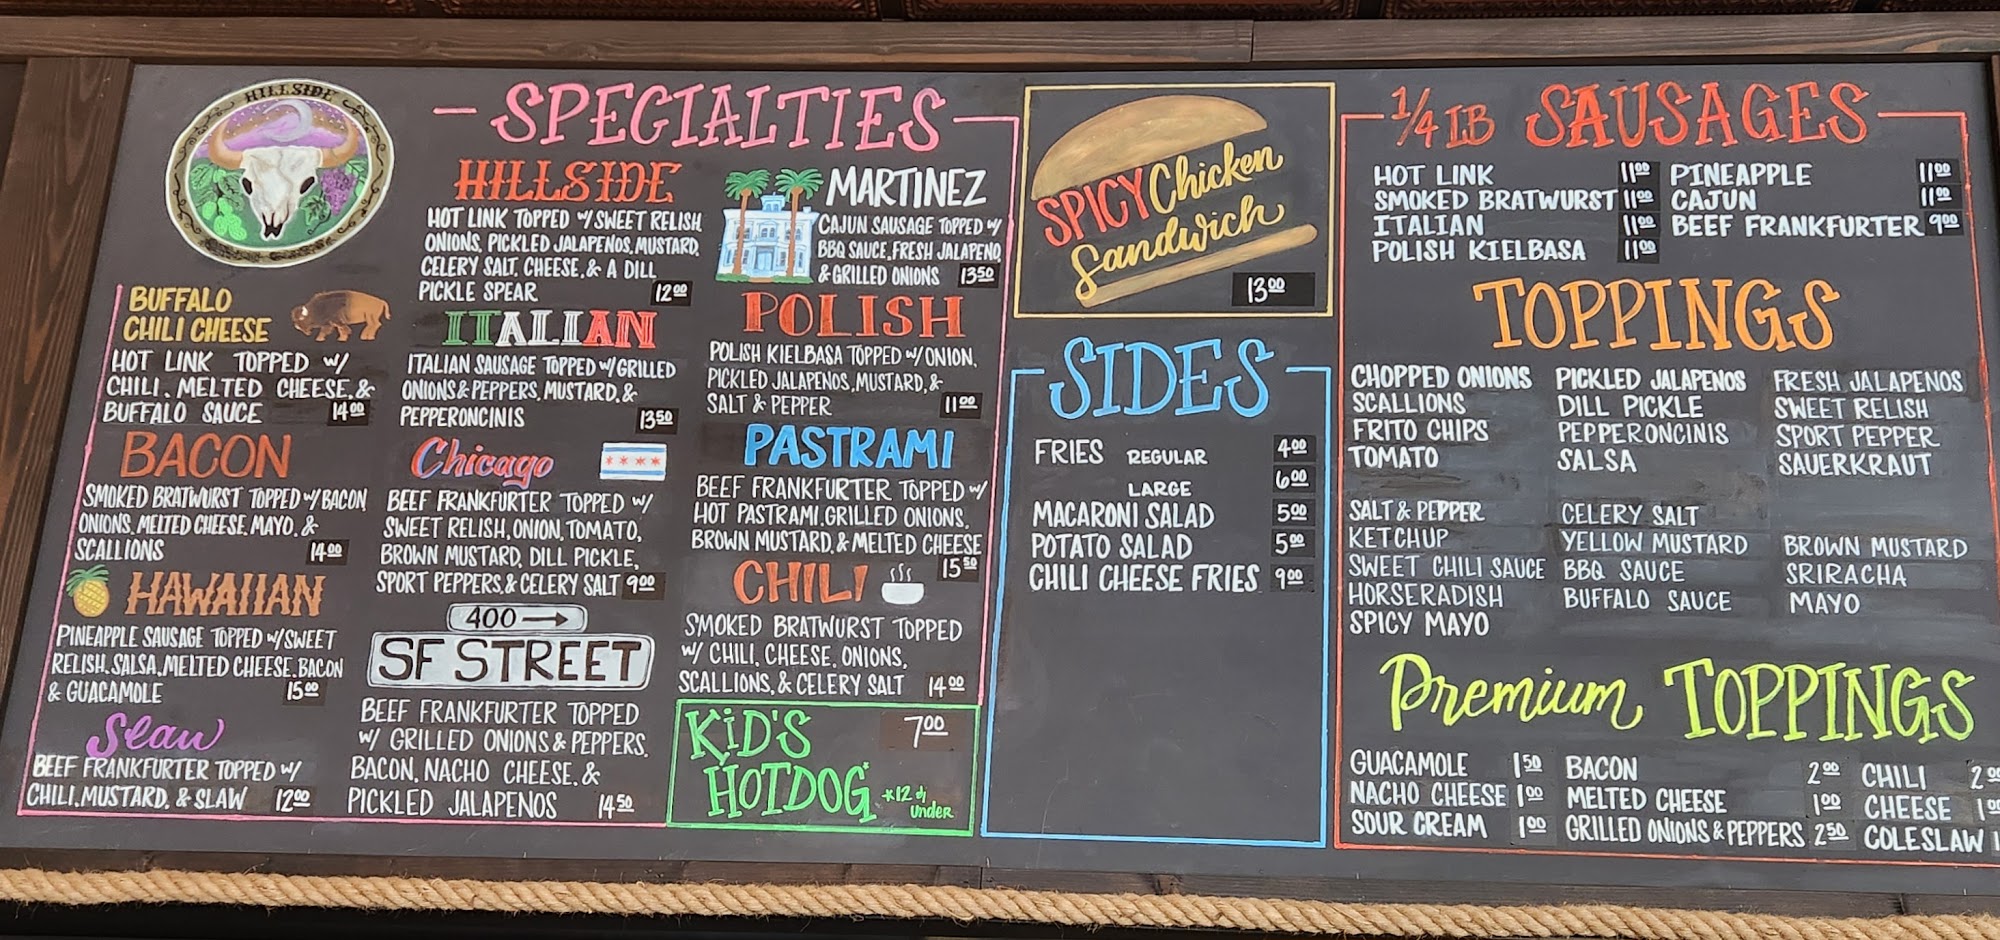 HILLSIDE
SPECIALTIES
BUFFALO
CHILI CHEESE
HOT LINK TOPPED W/
CHILI, MELTED CHEESE, &
BUFFALO SAUCE 1400
BACON
SMOKED BRATWURST TOPPED W/ BACON,
ONIONS, MELTED CHEESE, MAYO, &
SCALLIONS 1400
HAWAIIAN
PINEAPPLE SAUSAGE TOPPED W/ SWEET
RELISH, SALSA, MELTED CHEESE, BACON
& GUACAMOLE 1500
Slaw
BEEF FRANKFURTER TOPPED W/
CHILI, MUSTARD, & SLAW 1200
HILLSIDE
HOT LINK TOPPED W/ SWEET RELISH,
ONIONS, PICKLED JALAPENOS, MUSTARD,
CELERY SALT, CHEESE, & A DILL
PICKLE SPEAR 1200
ITALIAN
ITALIAN SAUSAGE TOPPED W/ GRILLED
ONIONS & PEPPERS, MUSTARD, &
PEPPERONCINIS 1350
Chicago
BEEF FRANKFURTER TOPPED W/
SWEET RELISH, ONION, TOMATO,
BROWN MUSTARD, DILL PICKLE,
SPORT PEPPERS, & CELERY SALT 900
400 →
SF STREET
BEEF FRANKFURTER TOPPED
W/ GRILLED ONIONS & PEPPERS,
BACON, NACHO CHEESE, &
PICKLED JALAPENOS 1450
MARTINEZ
CAJUN SAUSAGE TOPPED W/
BBQ SAUCE, FRESH JALAPENO,
& GRILLED ONIONS 1350
POLISH
POLISH KIELBASA TOPPED W/ ONION,
PICKLED JALAPENOS, MUSTARD, &
SALT & PEPPER 1100
PASTRAMI
BEEF FRANKFURTER TOPPED W/
HOT PASTRAMI, GRILLED ONIONS,
BROWN MUSTARD, & MELTED CHEESE
1550
CHILI
SMOKED BRATWURST TOPPED
W/ CHILI, CHEESE, ONIONS,
SCALLIONS, & CELERY SALT 1400
KID'S 7.00
HOTDOG*
*12 & Under
SPICY Chicken
Sandwich
13.00
SIDES
FRIES REGULAR 4.00
LARGE 6.00
MACARONI SALAD 5.00
POTATO SALAD 5.00
CHILI CHEESE FRIES 9.00
1/4 LB SAUSAGES
HOT LINK 11.00 PINEAPPLE 11.00
SMOKED BRATWURST 11.00 CAJUN 11.00
ITALIAN 11.00 BEEF FRANKFURTER 9.00
POLISH KIELBASA 11.00
TOPPINGS
CHOPPED ONIONS PICKLED JALAPENOS FRESH JALAPENOS
SCALLIONS DILL PICKLE SWEET RELISH
FRITO CHIPS PEPPERONCINIS SPORT PEPPER
TOMATO SALSA SAUERKRAUT
SALT & PEPPER CELERY SALT
KETCHUP YELLOW MUSTARD BROWN MUSTARD
SWEET CHILI SAUCE BBQ SAUCE SRIRACHA
HORSERADISH BUFFALO SAUCE MAYO
SPICY MAYO
Premium TOPPINGS
GUACAMOLE 1.50 BACON 2.00 CHILI
NACHO CHEESE 1.00 MELTED CHEESE 1.00 CHEESE
SOUR CREAM 1.00 GRILLED ONIONS & PEPPERS 2.50 COLESLAW